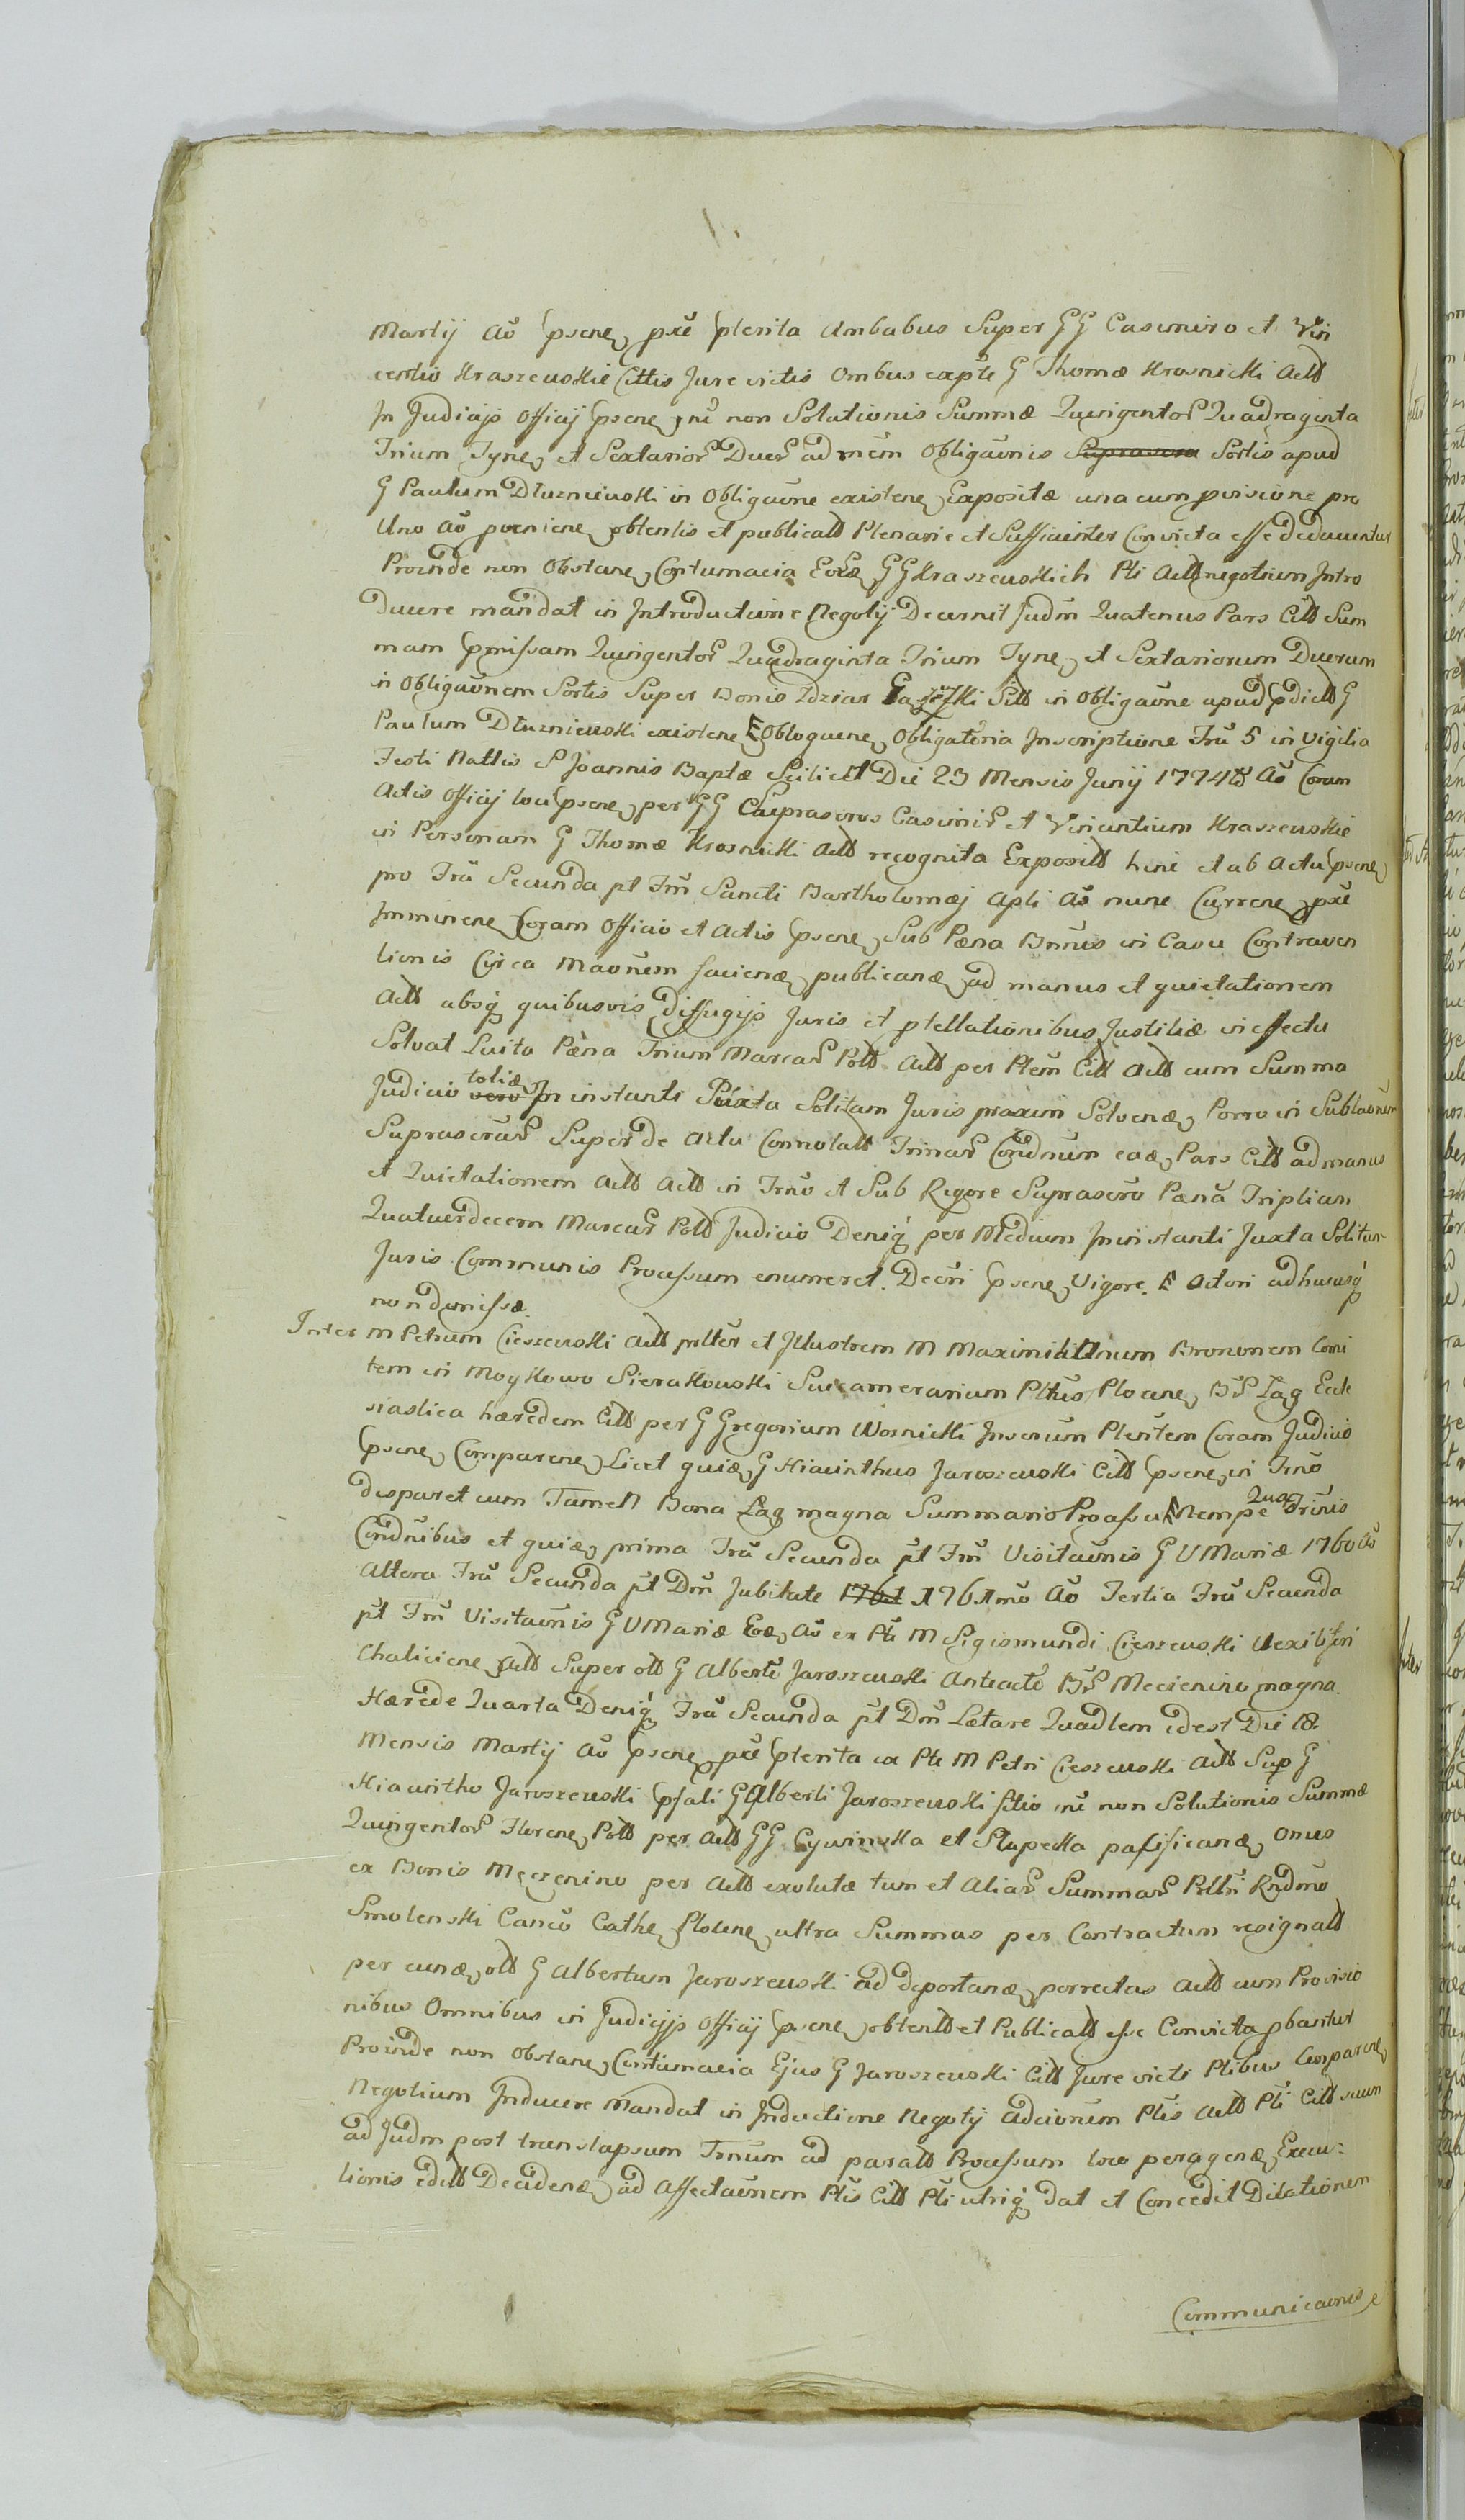 Martij Aō psene, pxē pterita Ambabus Super GG Casimiro et Vin
centio Kraszewskie Cittis Jure victis Ombus expte G Thomæ Krosnicki Actt
In Judicijs Officij psene, nē non Solutionis Summæ Quingentor Quadraginta
Trium Tyne, et Sextarior Duor ad mēm Obligaōnis Suprascra Sortis apud
G Paulum Dłuzniewski in Obligaōne existene, Expositæ una cum pvisione pro
Uno Aō pveniene, obtentis et publicatt Plenarie et Sufficienter Convicta esse deducuntur
Proinde non Obstane, Contumacia Eorā GG Kraszewskich Pti Actt negotium Intro
ducere mandat in Introductione Negotij Decernit Judm Quatenus Pars Citt Sum
mam pmissam Quingentor Quadraginta Trium Tyne, et Sextariorum Duorum
in Obligaōnem Sortis Super Bonis Zdziar Sitt in Obligaōne apud pdictt G
Paulum Dłuzniewski existene, Obloquene, Obligatoria Inscriptione Frā 5 in Vigilia
Festi Natlis S Joannis Baptæ Scilicet Die 23 Mensis Junij 1774to Aō Coram
Actis Officij loci psene, per GG Suprascros Casimir et Vincentium Kraszewskie
in Personam G Thomæ Krosnicki Actt recognita Expositt hinc et ab Actu psene,
pro Frā Secunda pt Fm Sancti Bartholomæj Apli Aō nunc Currene, pxē
Imminene, Coram Officio et Actis psene, Sub Pæna Bnnis in Casu Contraven
tionis Circa Maōnem faciene, publicanæ, ad manus et quietationem
Actt absq quibusvis diffugijs Juris et ptellationibus Justitiæ in effectu
Solvat Luita Pæna Trium Marcar Poltt Actt per Ptem Citt Actt cum Summa
Judicio vero toties In instanti Juxta Solitam Juris praxim Solvenæ, Porro in Sublaōnem
Suprascrar Super de Actu Connotatt Trinar Condnum eæ, Pars Citt ad manus
et Quietationem Actt Actt in Trno et Sub Rigore Suprascro Pænā Triplicum
Quatuordecem Marcar Poltt Judicio Deniq per Medium In instanti Juxta Solitum
Juris Communis Processum enumeret. Decri psene, Vigore. Actori adhucusq
non dimissæ.
Inter M Petrum Cieszewski Actt prlter et Illustrem M Maximilianum Brononem Comi
tem in Moykowo Sierakowski Succamerarium Pltus Plocene, BS Łąg Eccle
siastica hæredem Citt per G Gregorium Wosnicki Inserum Plentem Coram Judicio
psene, Comparene, Licet quiæ, G Hiacinthus Jaroszewski Citt psene, in Trno
disparet cum Tamen Bona Łąg magna Summario Processu Nempe Quatr Trinis
Condnibus et quiæ, prima Frā Secunda pt Fm Visitaōnis G V Mariæ 1760 Aō
Altera Frā Secunda pt Dm Jubilate 1761 1761mo Aō Tertia Frā Secunda
pt Fm Visitaōnis G V Mariæ Eoæ, Aō ex Pte M Sigismundi Cieszewski Vexilliferi
Chaliciene, Actt Super ott G Alberto Jaroszewski Anteacto BS Mecienino magna
Hærede Quarta Deniq Frā Secunda pt Dm Lætare Quadlem idest Die 18
Mensis Martij Aō psene, pxē pterita ex Pte M Petri Cieszewski Actt Sup G
Hiacintho Jaroszewski psati G Alberti Jaroszewski filio nē non Solutionis Summæ
Quingentor Florene, Poltt per Actt GG Cywinska et Stupecka pacificanæ, Onus
ex Bonis Meczenino per Actt exolutæ tum et Aliar Summar Prltri Rndmo
Smolenski Canco Cathe, Plocene, ultra Summas per Contractum resignatt
per eunæ, ott G Albertum Jaroszewski ad deportanæ, porrectas Actt cum Provisio
nibus Omnibus in Judicijs Officij psene, obtentt et Publicatt esse Convicta pbantur
Proinde non Obstane, Contumacia Ejus G Jaroszewski Citt Jure victi Ptibus Comparene,
Negotium Inducere Mandat in Inductione Negotij adcionem Ptis Actt Pti Citt suum
ad Judm post translapsum Trnum ad paratt Processum loco peragenæ, Execu=
tionis edītt Decidenæ, ad Affectaōnem Ptis Citt Pti utriq dat et Concedit Dilationem
Communicaōnis,